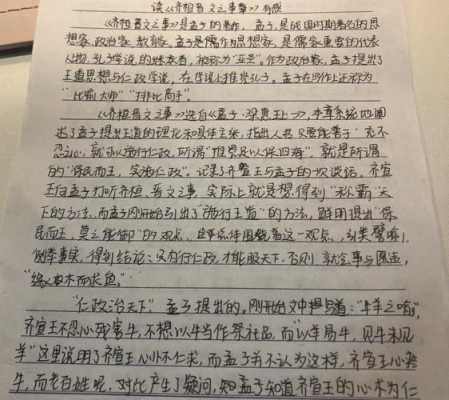 读《齐桓晋文之事章》有感
《齐桓晋文之事》是孟子的著作，孟子，是战国时期著名的思
想家，政治家，教育家，孟子是儒家思想家，是儒家重要的代表
人物，孔子学说的继承者，被称为“亚圣”。作为政治家，孟子提出了
王道思想与仁政学说，在学说上推崇孔子。孟子在写作上还称为
“比喻大师”“排比高手”。
《齐桓晋文之事》选自《孟子·梁惠王上》，本章系统地阐
述了孟子提出王道的理论和具体主张，指出人君只要能善于
不忍之心，就可以施行仁政，所谓“推恩足以保四海”，就是所谓
的“保民而王，实施仁政”。记录了齐宣王与孟子的一次谈话，齐宣
王向孟子打听齐桓、晋文事，实际上就是想得到“称霸”天
下的方法，而孟子刚开始引出了“施行王道”的方法，鲜明提出“保
民而王，莫之能御”的观点，故事始终围绕着这一观点，
例举事实，得到结论：只有行仁政，才能服天下，否则，就会事与愿违，
“缘木而求鱼。”
“仁政治天下”孟子提出的，刚开始文中提到道：“牛羊之喻”，
齐宣王不忍心残害牛，不想以牛当作祭祀品，而“以羊易牛，见牛未见
羊”这里说明了齐宣王心怀不仁术，而孟子并不认为这样，齐宣王
牛，而老百姓呢，对比产生了疑问，孟子知道齐宣王的心本为仁